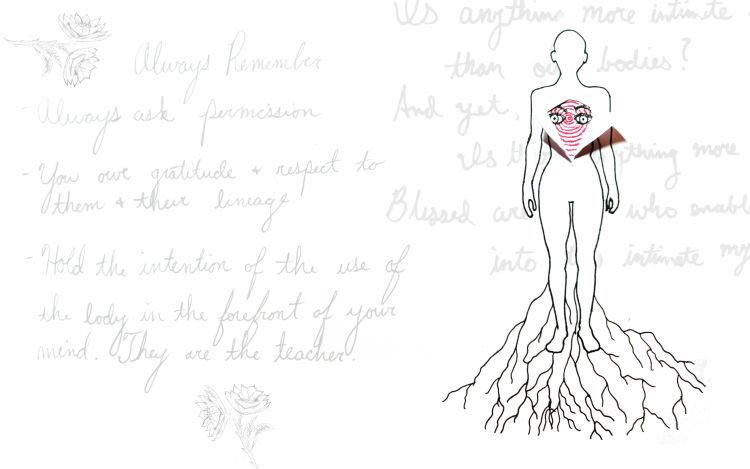 Always Remember
- Always ask permission
- You owe gratitude + respect to
them + their lineage
- Hold the intention of the use of
the body in the forefront of your
mind. They are the teacher.
Is anything more intimate
than our bodies?
And yet,
Is thing more
Blessed are who enable
into intimate my